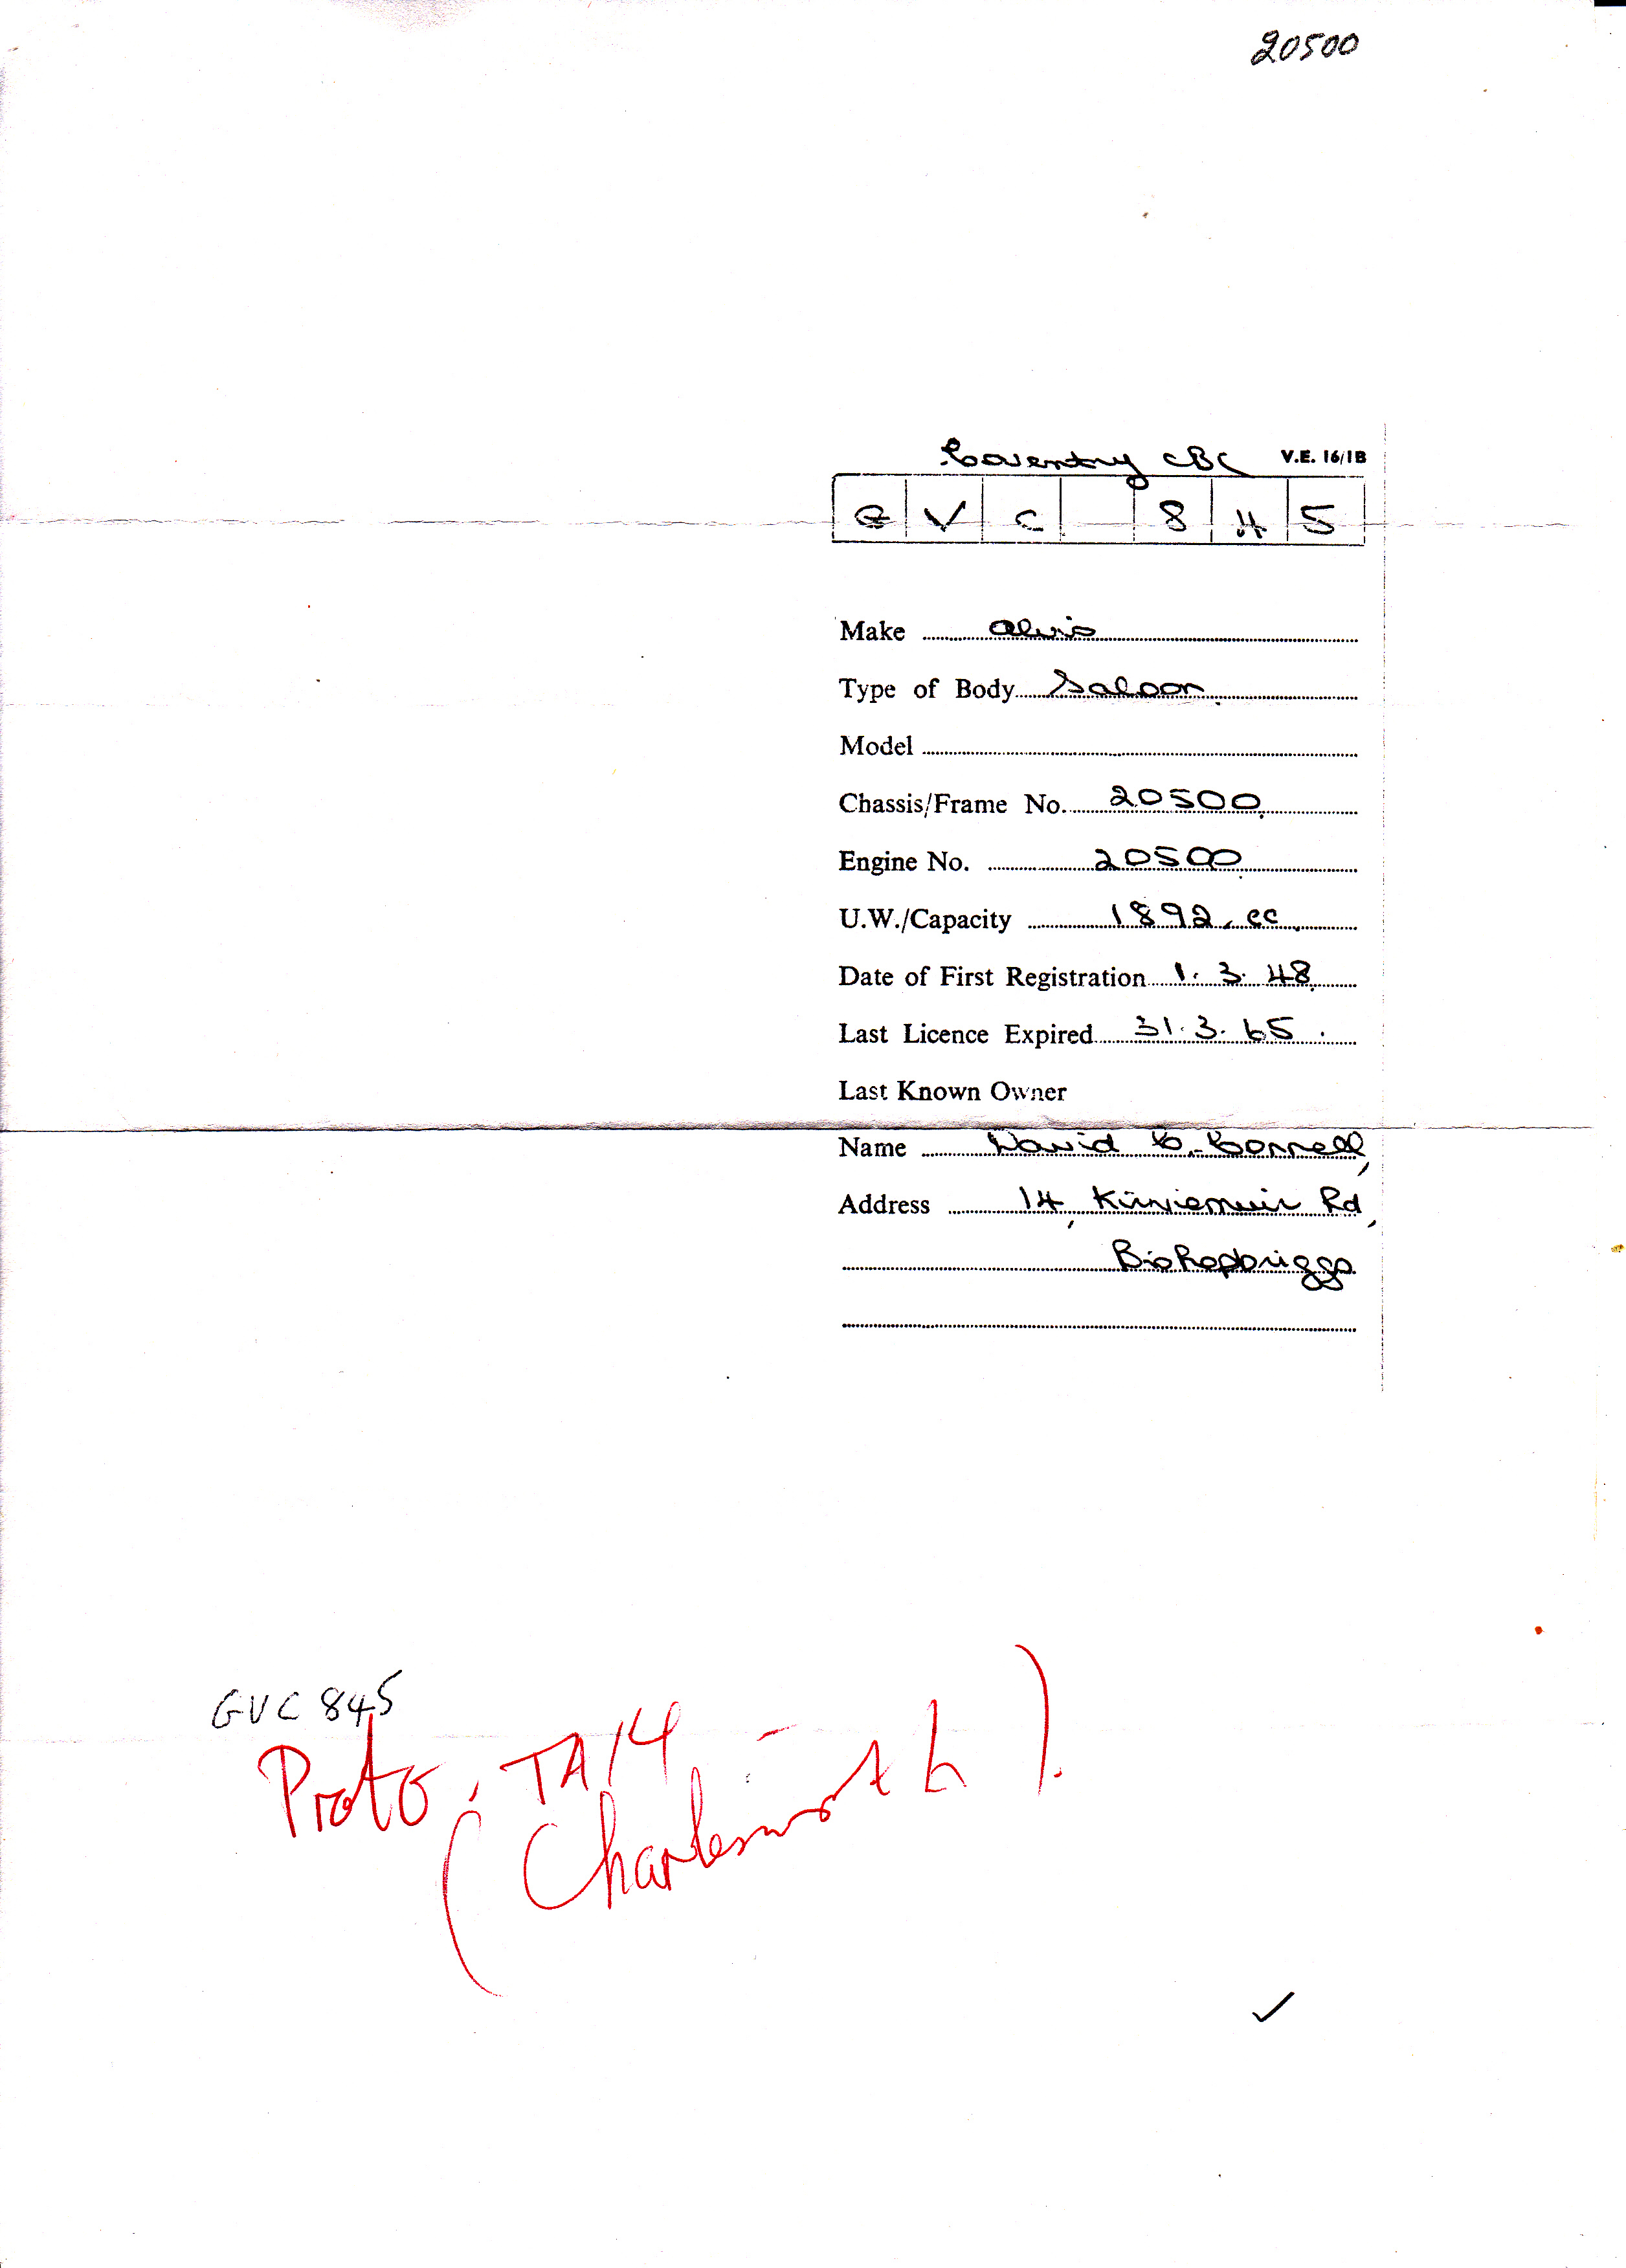 20500
Coventry CBC V.E. 16/1B
G V C 8 4 5
Make Alvis
Type of Body Saloon
Model
Chassis/Frame No. 20500
Engine No. 20500
U.W./Capacity 1892 cc
Date of First Registration 1. 3. 48
Last Licence Expired 31. 3. 65.
Last Known Owner
Name David C. Connell,
Address 14, Kirriemuir Rd,
Bishopbriggs
GVC 845
Proto. TA14
(Charlesworth).